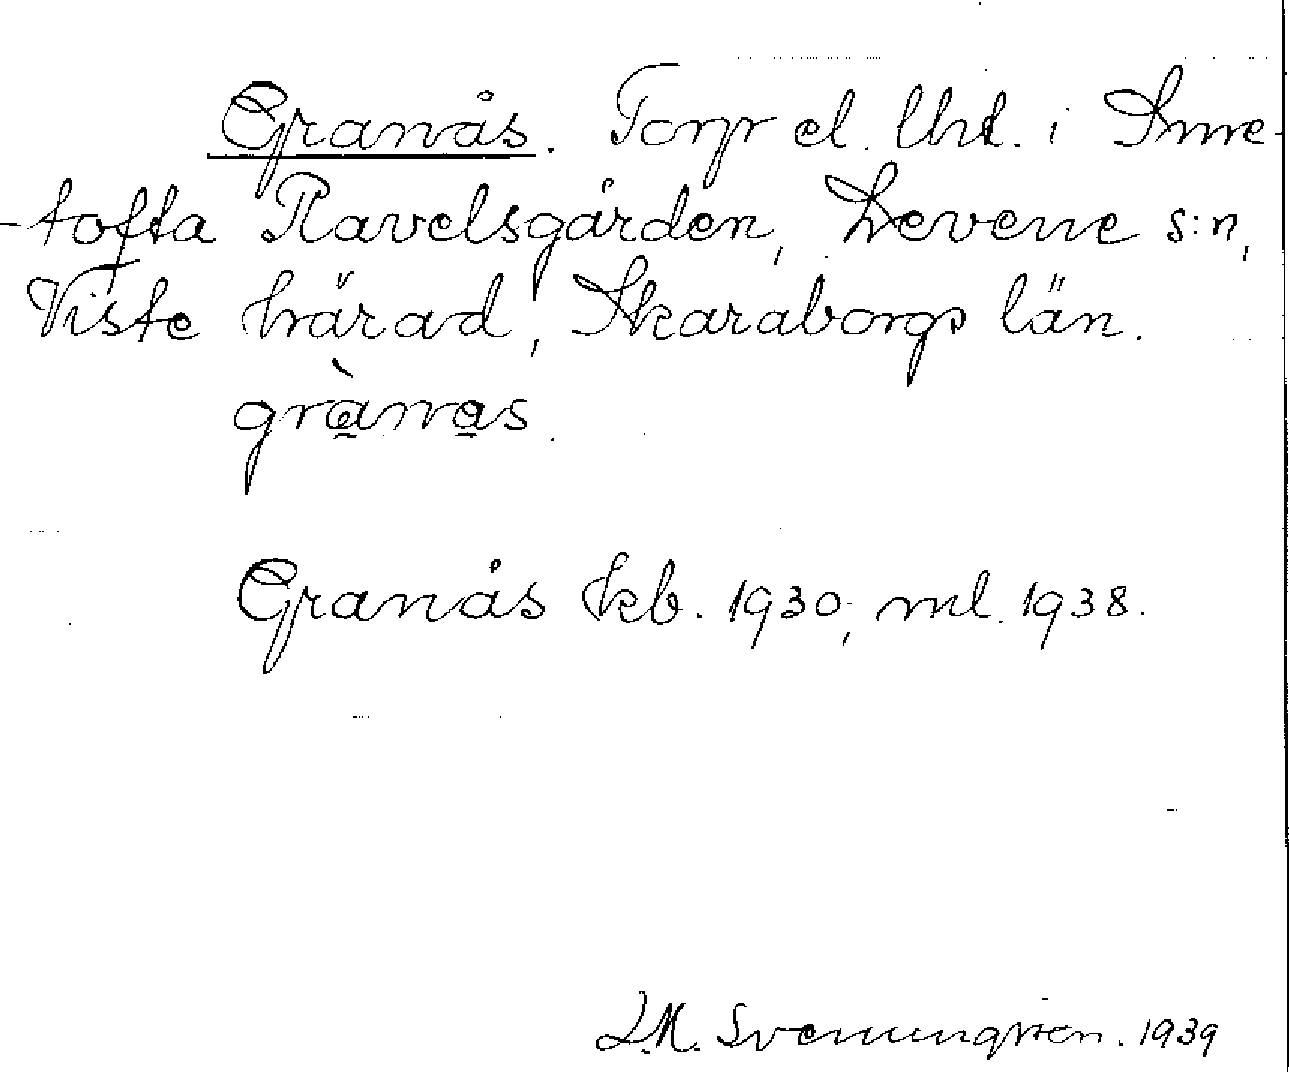 Granås. Torp el. lht. i Smre-
-tofta Ravelsgården, Levene s:n,
Viste härad, Skaraborgs län.
grànas.
Granås kb. 1930, ml. 1938.
1939